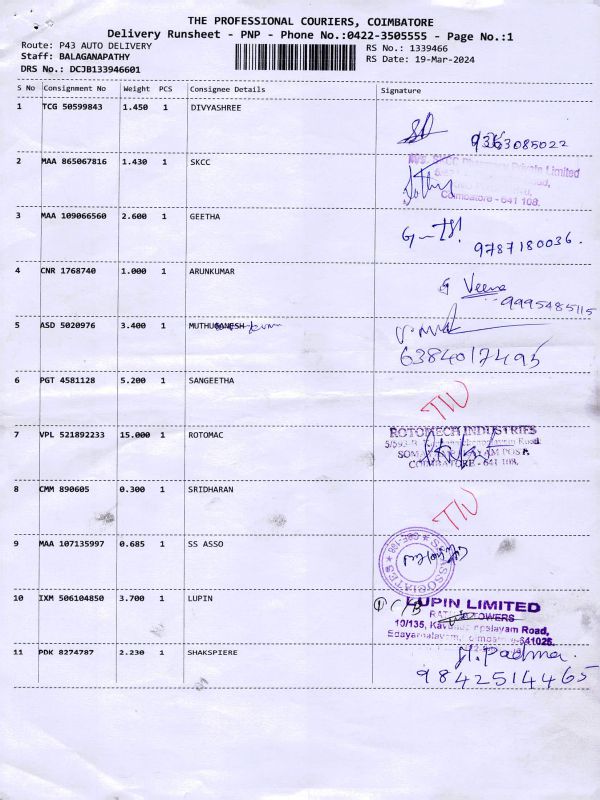 THE PROFESSIONAL COURIERS, COIMBATORE
Delivery Runsheet - PNP - Phone No.:0422-3505555 - Page No.:1
Route: P43 AUTO DELIVERY
Staff: BALAGANAPATHY
DRS No.: DCJB133946601
RS No.: 1339466
RS Date: 19-Mar-2024
S No Consignment No Weight PCS Consignee Details Signature
1 TCG 50599843 1.450 1 DIVYASHREE
9363085022
2 MAA 865067816 1.430 1 SKCC
Private Limited
Coimbatore - 641 108.
3 MAA 109066560 2.600 1 GEETHA
9787180036.
4 CNR 1768740 1.000 1 ARUNKUMAR
G Veena
9995485115
5 ASD 5020976 3.400 1 MUTHUGANESH
6384017495
6 PGT 4581128 5.200 1 SANGEETHA
7 VPL 521892233 15.000 1 ROTOMAC
ROTOMECH INDUSTRIES
COIMBATORE - 641 108.
8 CMM 890605 0.300 1 SRIDHARAN
9 MAA 107135997 0.685 1 SS ASSO
10 IXM 506104850 3.700 1 LUPIN
LUPIN LIMITED
TOWERS
10/135, Road,
Edayarpalayam, -641025.
11 PDK 8274787 2.230 1 SHAKSPIERE
M. Padma.
9842514465